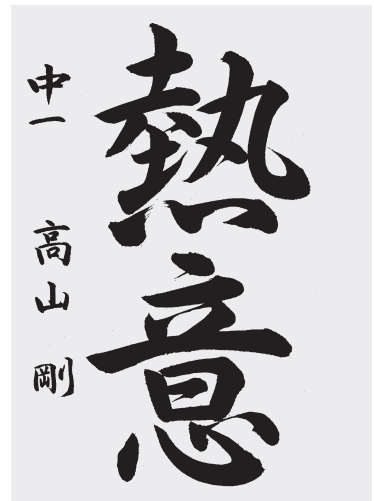 熱意
中一 高山 剛